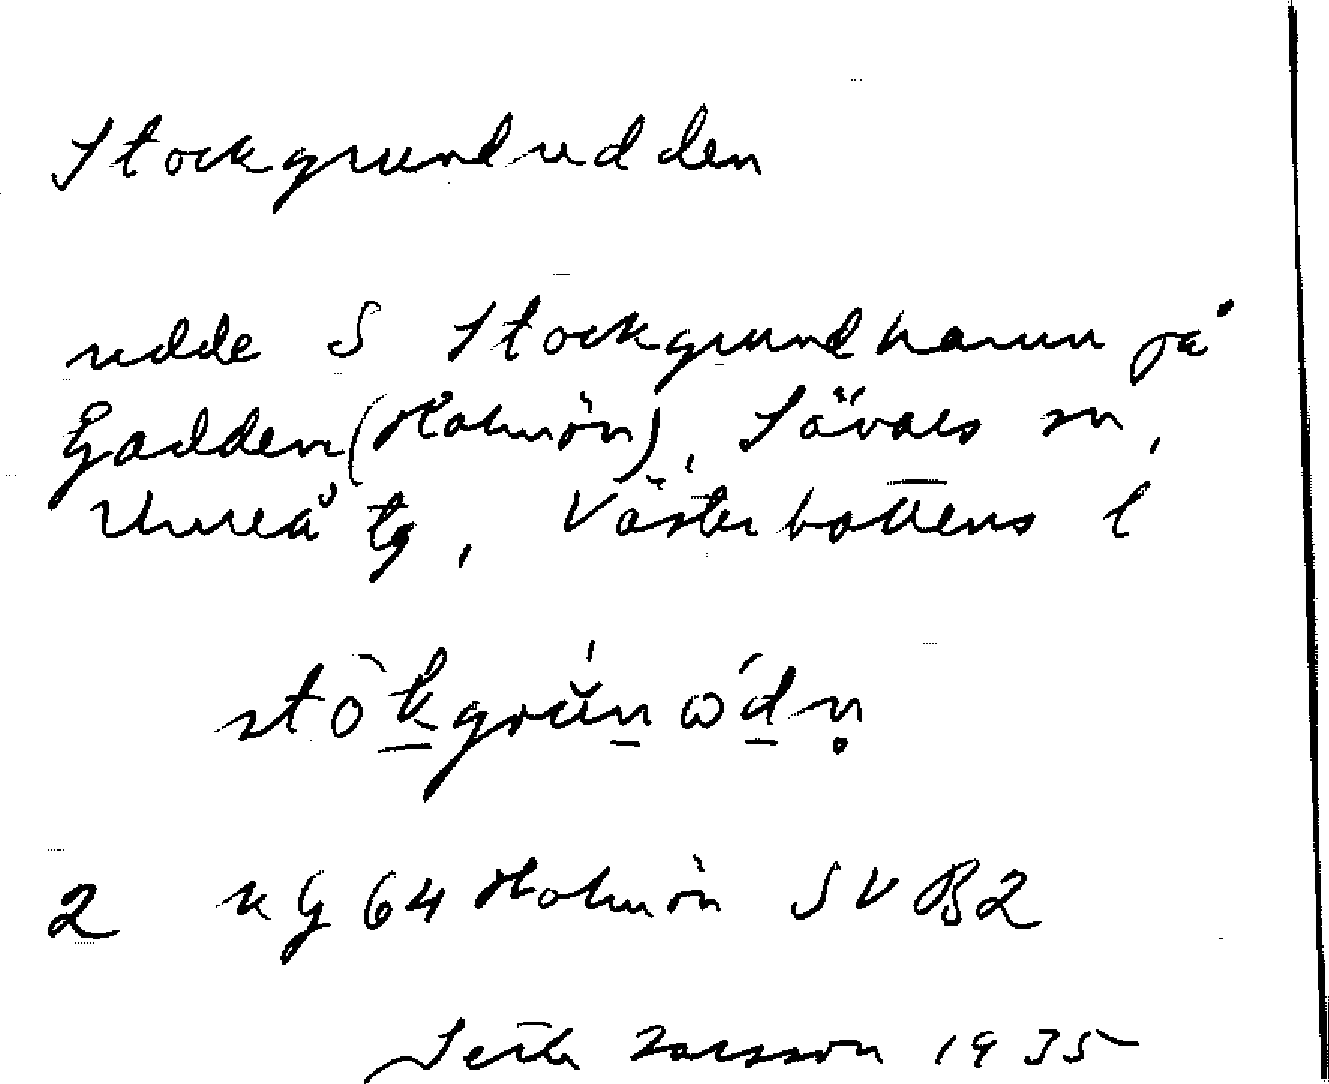 Stockgrundudden
udde S Stockgrundhamn på
Gadden (Holmön), Sävars sn,
Umeå tg, Västerbottens l
2 KG 64 Holmön SV B2
Seth Larsson 1935